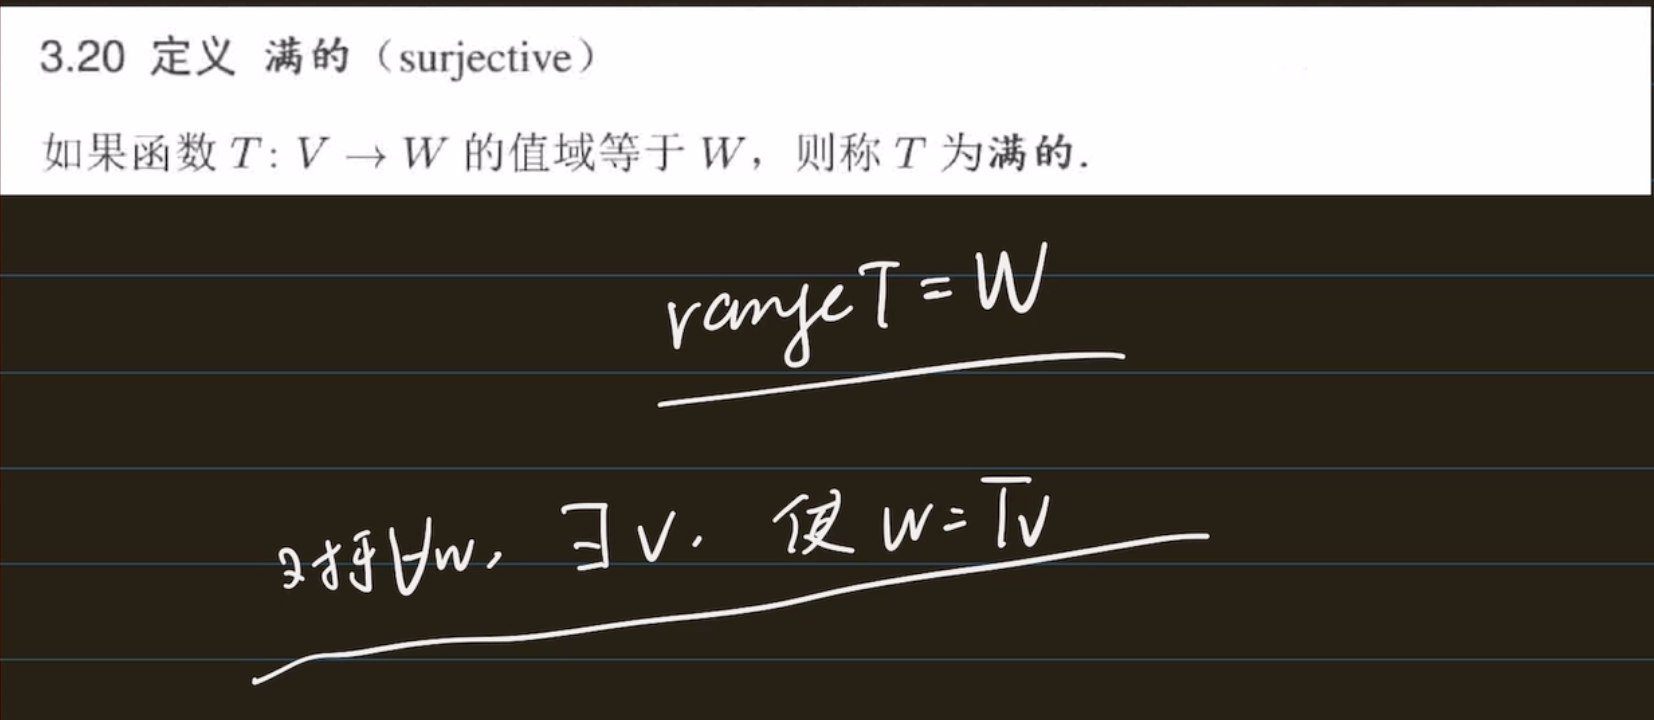 3.20 定义 满的（surjective）
如果函数 T: V → W 的值域等于 W，则称 T 为满的.
range T = W
对于∀w, ∃ v, 使 w = Tv